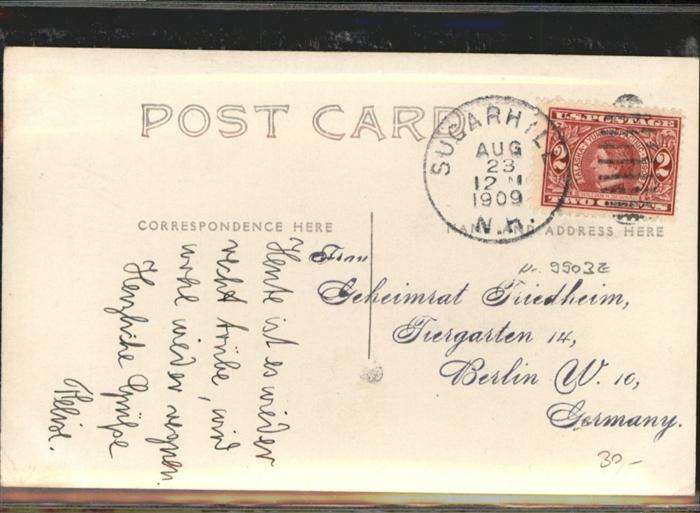 POST CARD
SUGAR HILL
AUG
23
12 M
1909
N.H.
U.S. POSTAGE
2 2
TWO CENTS
CORRESPONDENCE HERE
NAME AND ADDRESS HERE
Heute ist es wieder
recht trübe, wird
wohl wieder regnen.
Herzliche Grüße
Frau
Geheimrat Friedheim,
Tiergarten 14,
Berlin W. 10,
Germany.
30,-